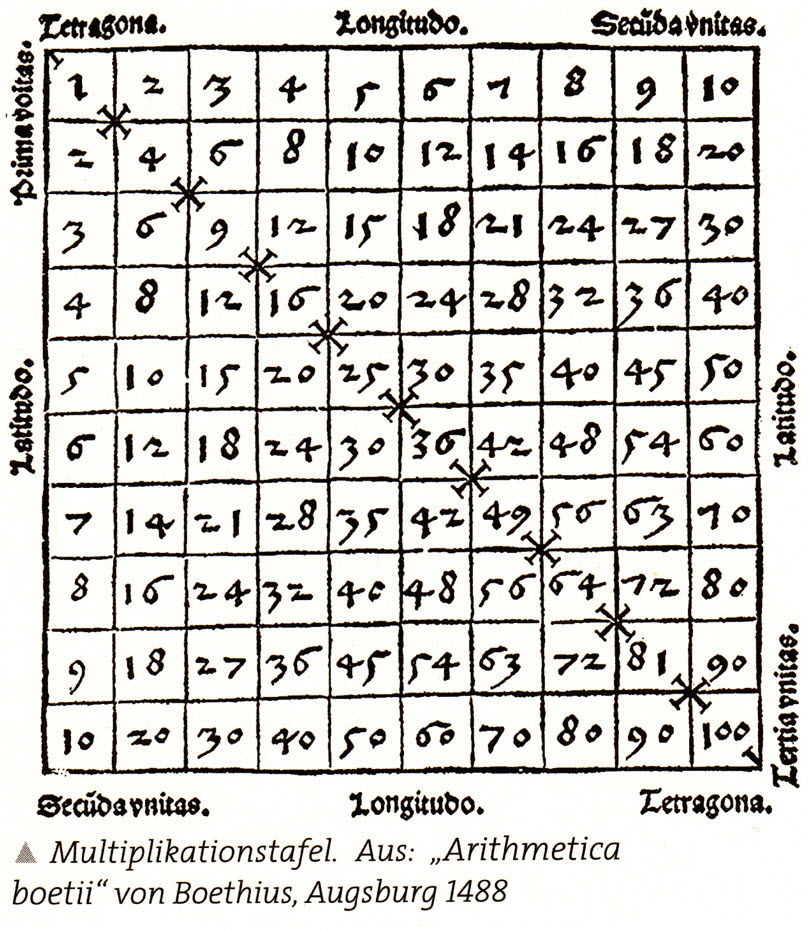 Tetragona. Longitudo. Secūdavnitas.
Prima vnitas.
1 2 3 4 5 6 7 8 9 10
2 4 6 8 10 12 14 16 18 20
3 6 9 12 15 18 21 24 27 30
4 8 12 16 20 24 28 32 36 40
Latitudo.
5 10 15 20 25 30 35 40 45 50
Latitudo.
6 12 18 24 30 36 42 48 54 60
7 14 21 28 35 42 49 56 63 70
8 16 24 32 40 48 56 64 72 80
9 18 27 36 45 54 63 72 81 90
Tertia vnitas.
10 20 30 40 50 60 70 80 90 100
Secūdavnitas. Longitudo. Tetragona.
Multiplikationstafel. Aus: „Arithmetica
boetii“ von Boethius, Augsburg 1488